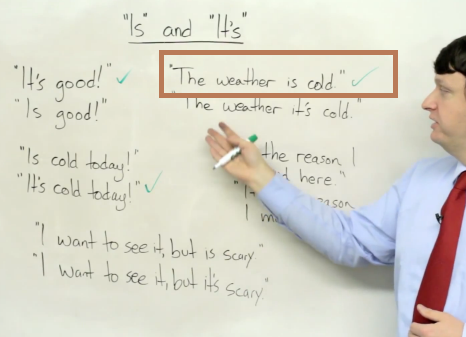 "Is" and "It's"
"It's good!"
"Is good!"
"Is cold today!"
"It's cold today!"
"I want to see it, but is scary"
"I want to see it, but it's scary."
"The weather is cold."
"The weather it's cold."
the reason I
here."
I